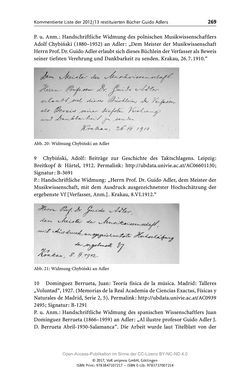 Kommentierte Liste der 2012/13 restituierten Bücher Guido Adlers 269
P. u. Anm.: Handschriftliche Widmung des polnischen Musikwissenschaftlers
Adolf Chybiński (1880–1952) an Adler: „Dem Meister der Musikwissenschaft
Herrn Prof. Dr. Guido Adler erlaubt sich dies Büchlein der Verfasser als Beweis
seiner tiefsten Verehrung und Dankbarkeit zu senden. Krakau, 26.7.1910.“
Dem Meister der Musikwissenschaft
Herrn Professor Dr. Guido Adler
erlaubt sich dies Büchlein der Verfasser
als Beweis seiner tiefsten Verehrung
und Dankbarkeit zu senden
Krakau, 26.VII 1910
Abb. 20: Widmung Chybiński an Adler
9 Chybiński, Adolf: Beiträge zur Geschichte des Taktschlagens. Leipzig:
Breitkopf & Härtel, 1912. Permalink: http://ubdata.univie.ac.at/AC06601130;
Signatur: B-3691
P.: Handschriftliche Widmung: „Herrn Prof. Dr. Guido Adler, dem Meister der
Musikwissenschaft, mit dem Ausdruck ausgezeichneter Hochschätzung der
ergebenste Vf [Verfasser, Anm.]. Krakau, 8.VI.1912.“
Herrn Prof. Dr. Guido Adler,
dem Meister der Musikwissenschaft,
mit Ausdruck ausgezeichneter Hochschätzung
der ergebenste Vf
Krakau, 1912
Abb. 21: Widmung Chybiński an Adler
10 Dominguez Berrueta, Juan: Teoría física de la música. Madrid: Talleres
„Voluntad“, 1927. (Memorias de la Real Academia de Ciencias Exactas, Físicas y
Naturales de Madrid, Serie 2, 5). Permalink: http://ubdata.univie.ac.at/AC03939
2495; Signatur: B-1291
P. u. Anm.: Handschriftliche Widmung des spanischen Wissenschafters Juan
Dominguez Berrueta (1866–1959) an Adler: „Al ilustre profesor Guido Adler J.
D. Berrueta Abril-1930-Salamanca“. Die Arbeit wurde laut Titelblatt von der
Open-Access-Publikation im Sinne der CC-Lizenz BY-NC-ND 4.0
© 2017, V&R unipress GmbH, Göttingen